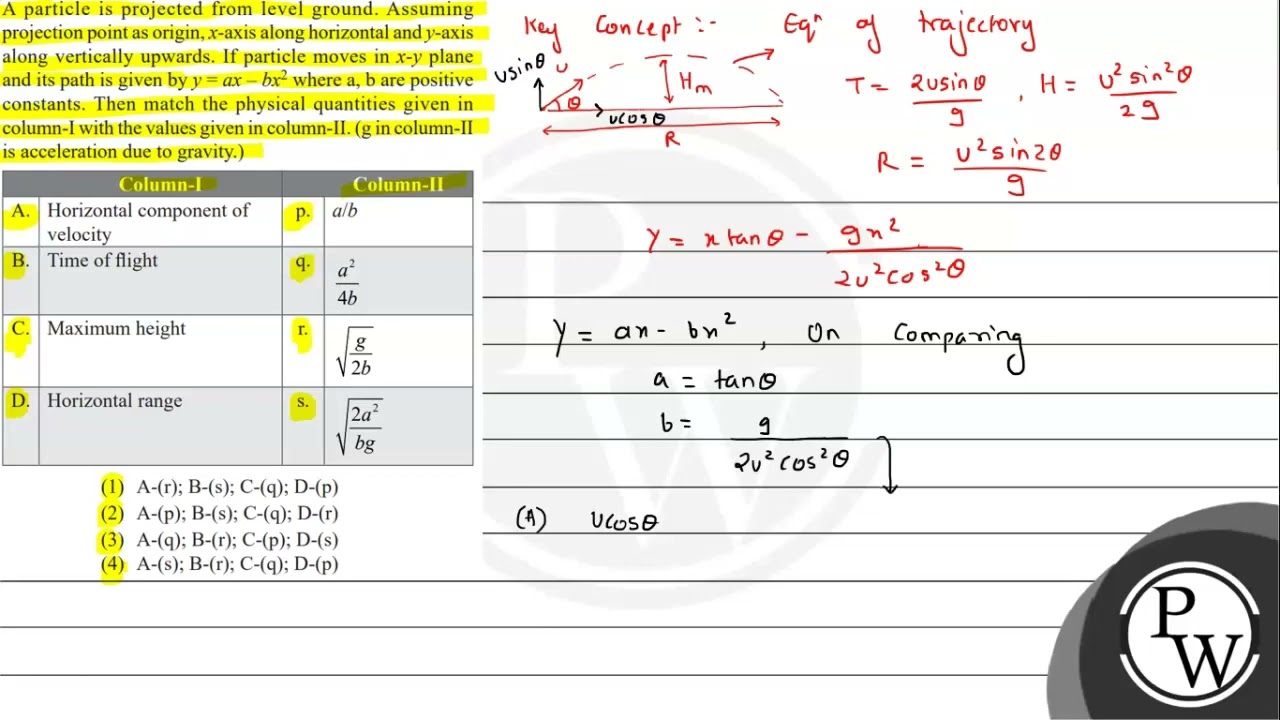 A particle is projected from level ground. Assuming
projection point as origin, x-axis along horizontal and y-axis
along vertically upwards. If particle moves in x-y plane
and its path is given by y = ax – bx² where a, b are positive
constants. Then match the physical quantities given in
column-I with the values given in column-II. (g in column-II
is acceleration due to gravity.)
Column-I Column-II
A. Horizontal component of velocity p. a/b
B. Time of flight q. a²/4b
C. Maximum height r. √(g/2b)
D. Horizontal range s. √(2a²/bg)
(1) A-(r); B-(s); C-(q); D-(p)
(2) A-(p); B-(s); C-(q); D-(r)
(3) A-(q); B-(r); C-(p); D-(s)
(4) A-(s); B-(r); C-(q); D-(p)
Key Concept :- Eqⁿ of trajectory
usinθ u θ ucosθ Hm R
T = 2usinθ/g , H = u²sin²θ/2g
R = u²sin2θ/g
y = x tanθ – gx²/2u²cos²θ
y = ax – bx² , On Comparing
a = tanθ
b = g/2u²cos²θ
(A) ucosθ
P
W